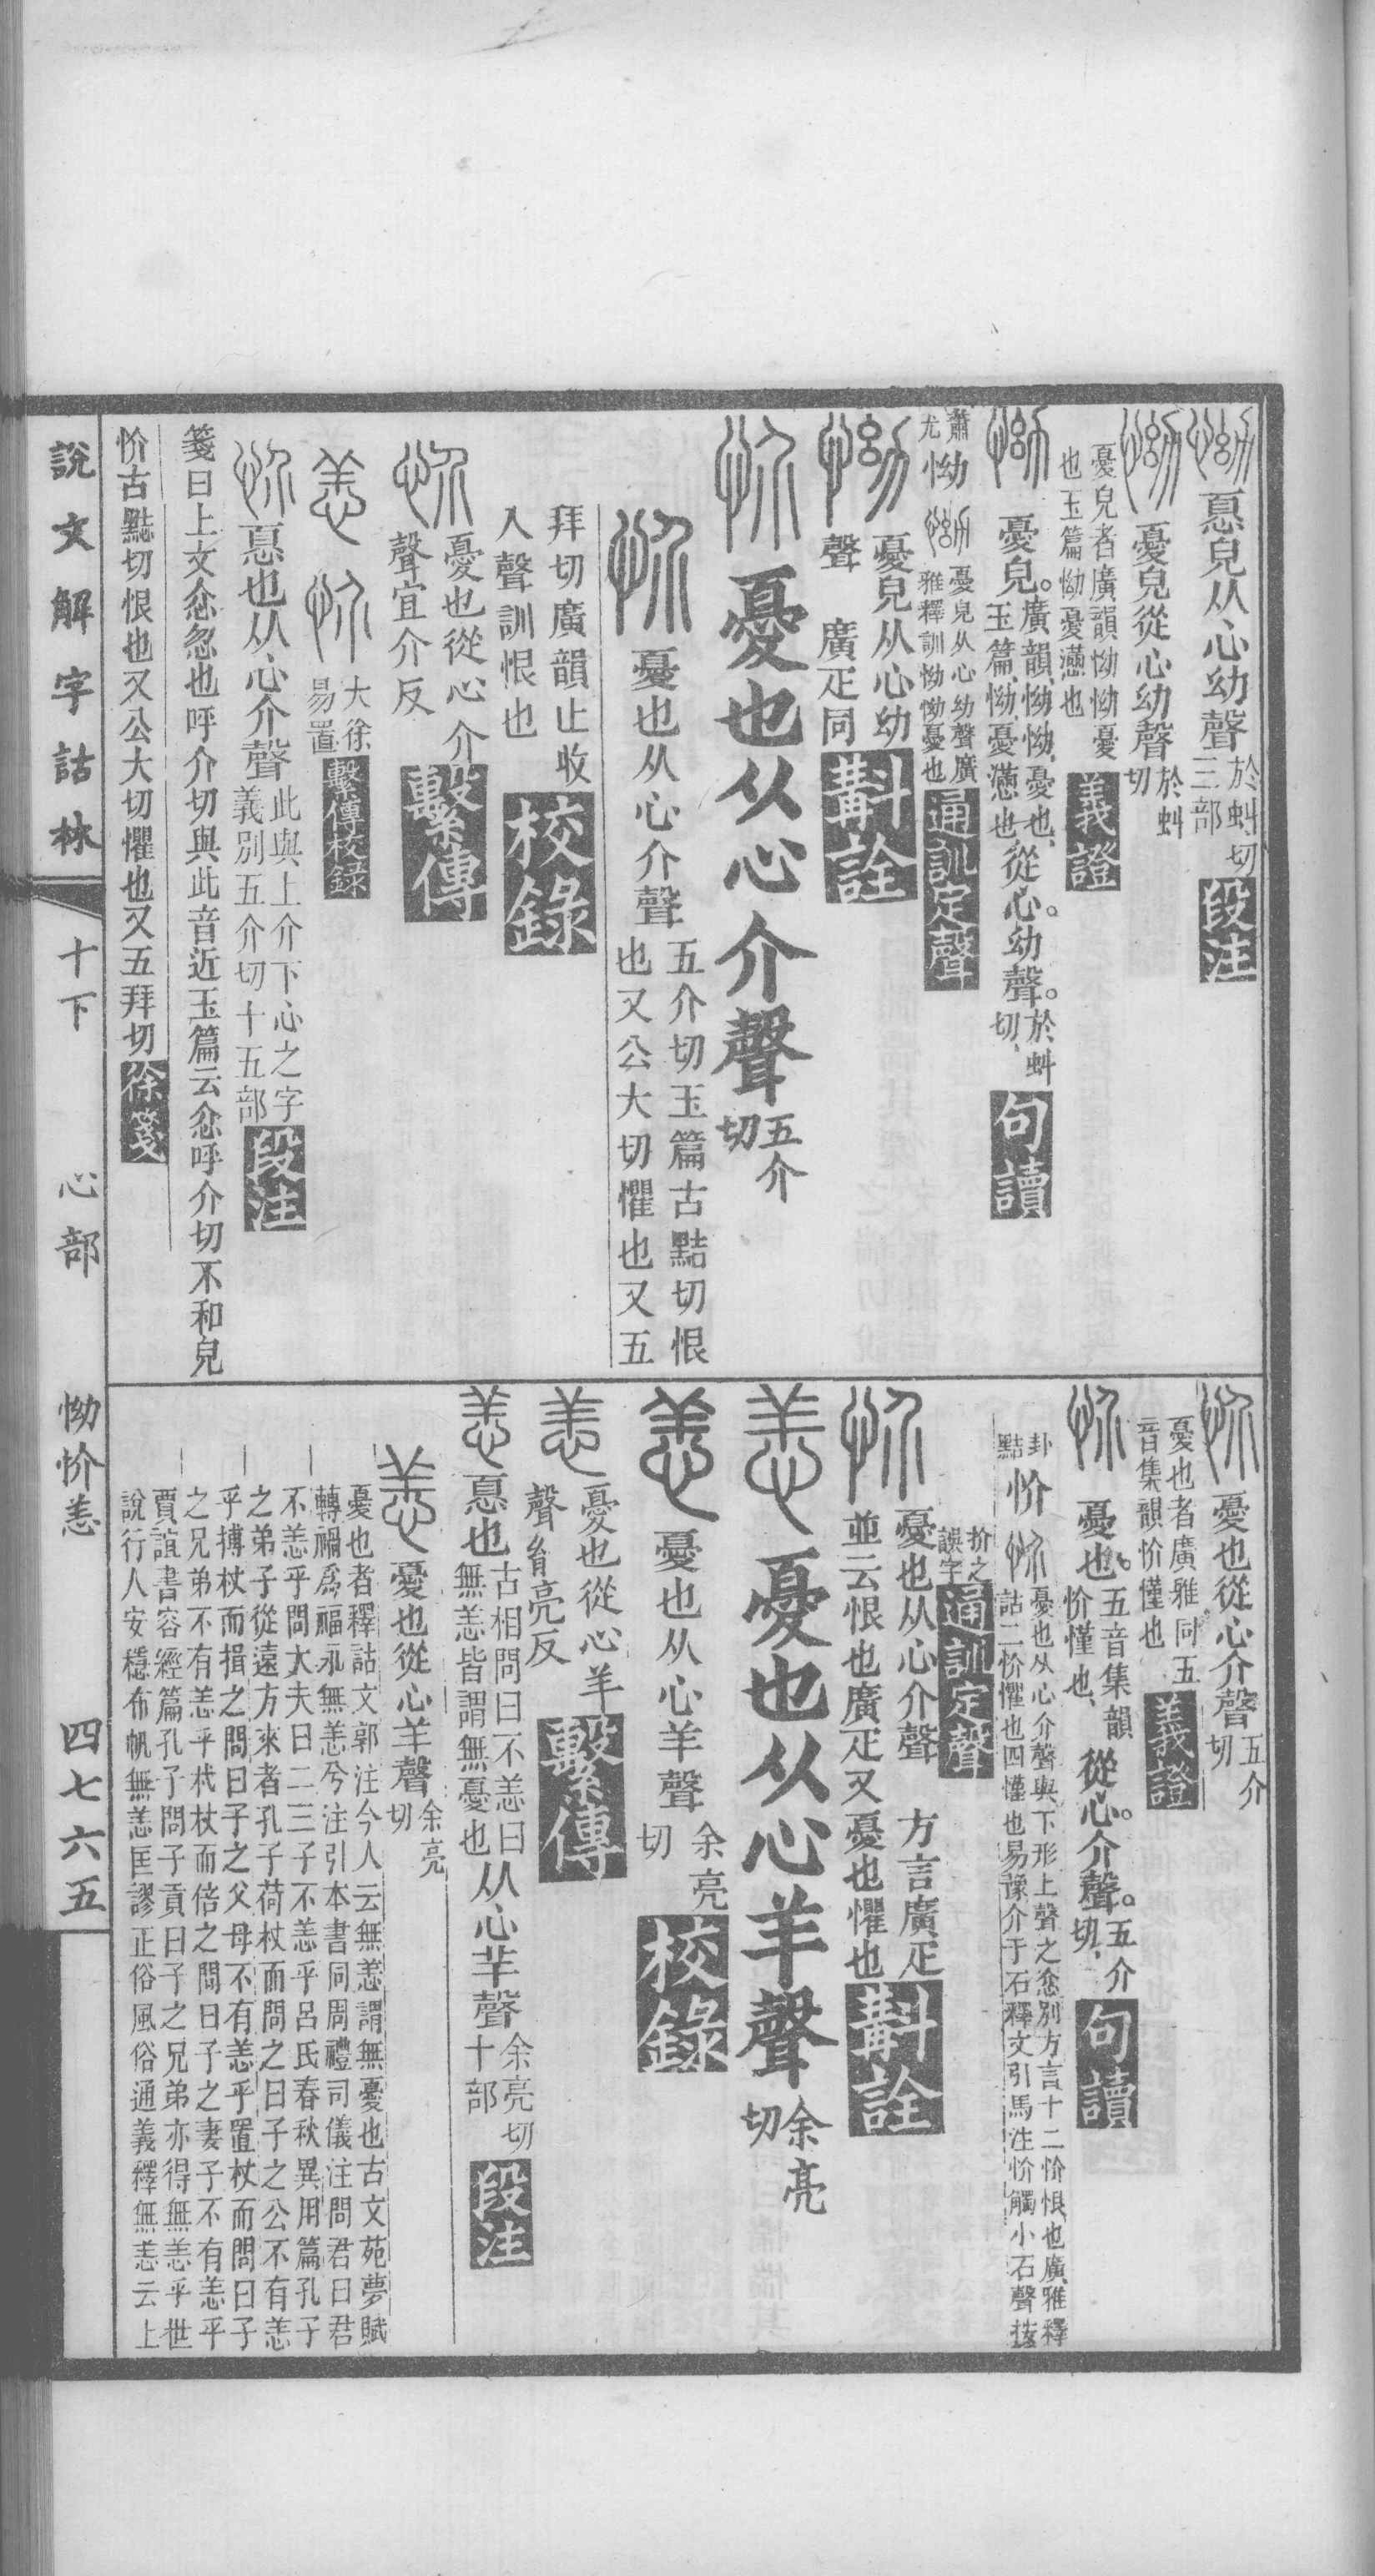 㤑 惪皃从心幼聲 於虯切三部 段注
㤑 憂皃從心幼聲 於虯切
憂皃者廣韻怮怮憂也玉篇怮憂懣也 義證
怮 憂皃。廣韻怮怮、憂也、玉篇、怮、憂懣也、從心。幼聲。於虯切、 句讀
蕭尤 怮 怮 憂皃从心幼聲廣雅釋訓怮怮憂也 通訓定聲
怮 憂皃从心幼聲 廣疋同 斠詮
忦 憂也从心介聲 五介切
忦 憂也从心介聲 五介切玉篇古黠切恨也又公大切懼也又五
拜切廣韻止收入聲訓恨也 校錄
忦 憂也從心介聲宜介反 繫傳
恙 忦 大徐易置 繫傳校錄
忦 惪也从心介聲 此與上介下心之字義別五介切十五部 段注
箋曰上文忿忽也呼介切與此音近玉篇云忿呼介切不和皃
忦古黠切恨也又公大切懼也又五拜切 徐箋
忦 憂也從心介聲 五介切
憂也者廣雅同五音集韻忦慬也 義證
忦 憂也。五音集韻忦慬也、從心。介聲。五介切、 句讀
卦黠 忦 忦 憂也从心介聲與下形上聲之忿別方言十二忦恨也廣雅釋詁二忦懼也四慬也易豫介于石釋文引馬注忦觸小石聲按
扴之誤字 通訓定聲
忦 憂也从心介聲 方言廣疋並云恨也廣疋又憂也懼也 斠詮
恙 憂也从心羊聲 余亮切
恙 憂也从心羊聲 余亮切 校錄
恙 憂也從心羊聲 䏌亮反 繫傳
恙 惪也 古相問曰不恙曰無恙皆謂無憂也 从心羊聲 余亮切十部 段注
恙 憂也從心羊聲 余亮切
憂也者釋詁文郭注今人云無恙謂無憂也古文苑夢賦
轉禍爲福永無恙兮注引本書同周禮司儀注問君曰君
不恙乎問大夫曰二三子不恙乎呂氏春秋異用篇孔子
之弟子從遠方來者孔子荷杖而問之曰子之公不有恙
乎搏杖而揖之問曰子之父母不有恙乎置杖而問曰子
之兄弟不有恙乎杙杖而倍之問曰子之妻子不有恙乎
賈誼書容經篇孔子問子貢曰子之兄弟亦得無恙乎世
說行人安穩布帆無恙匡謬正俗風俗通義釋無恙云上
說文解字詁林 十下 心部 怮忦恙 四七六五